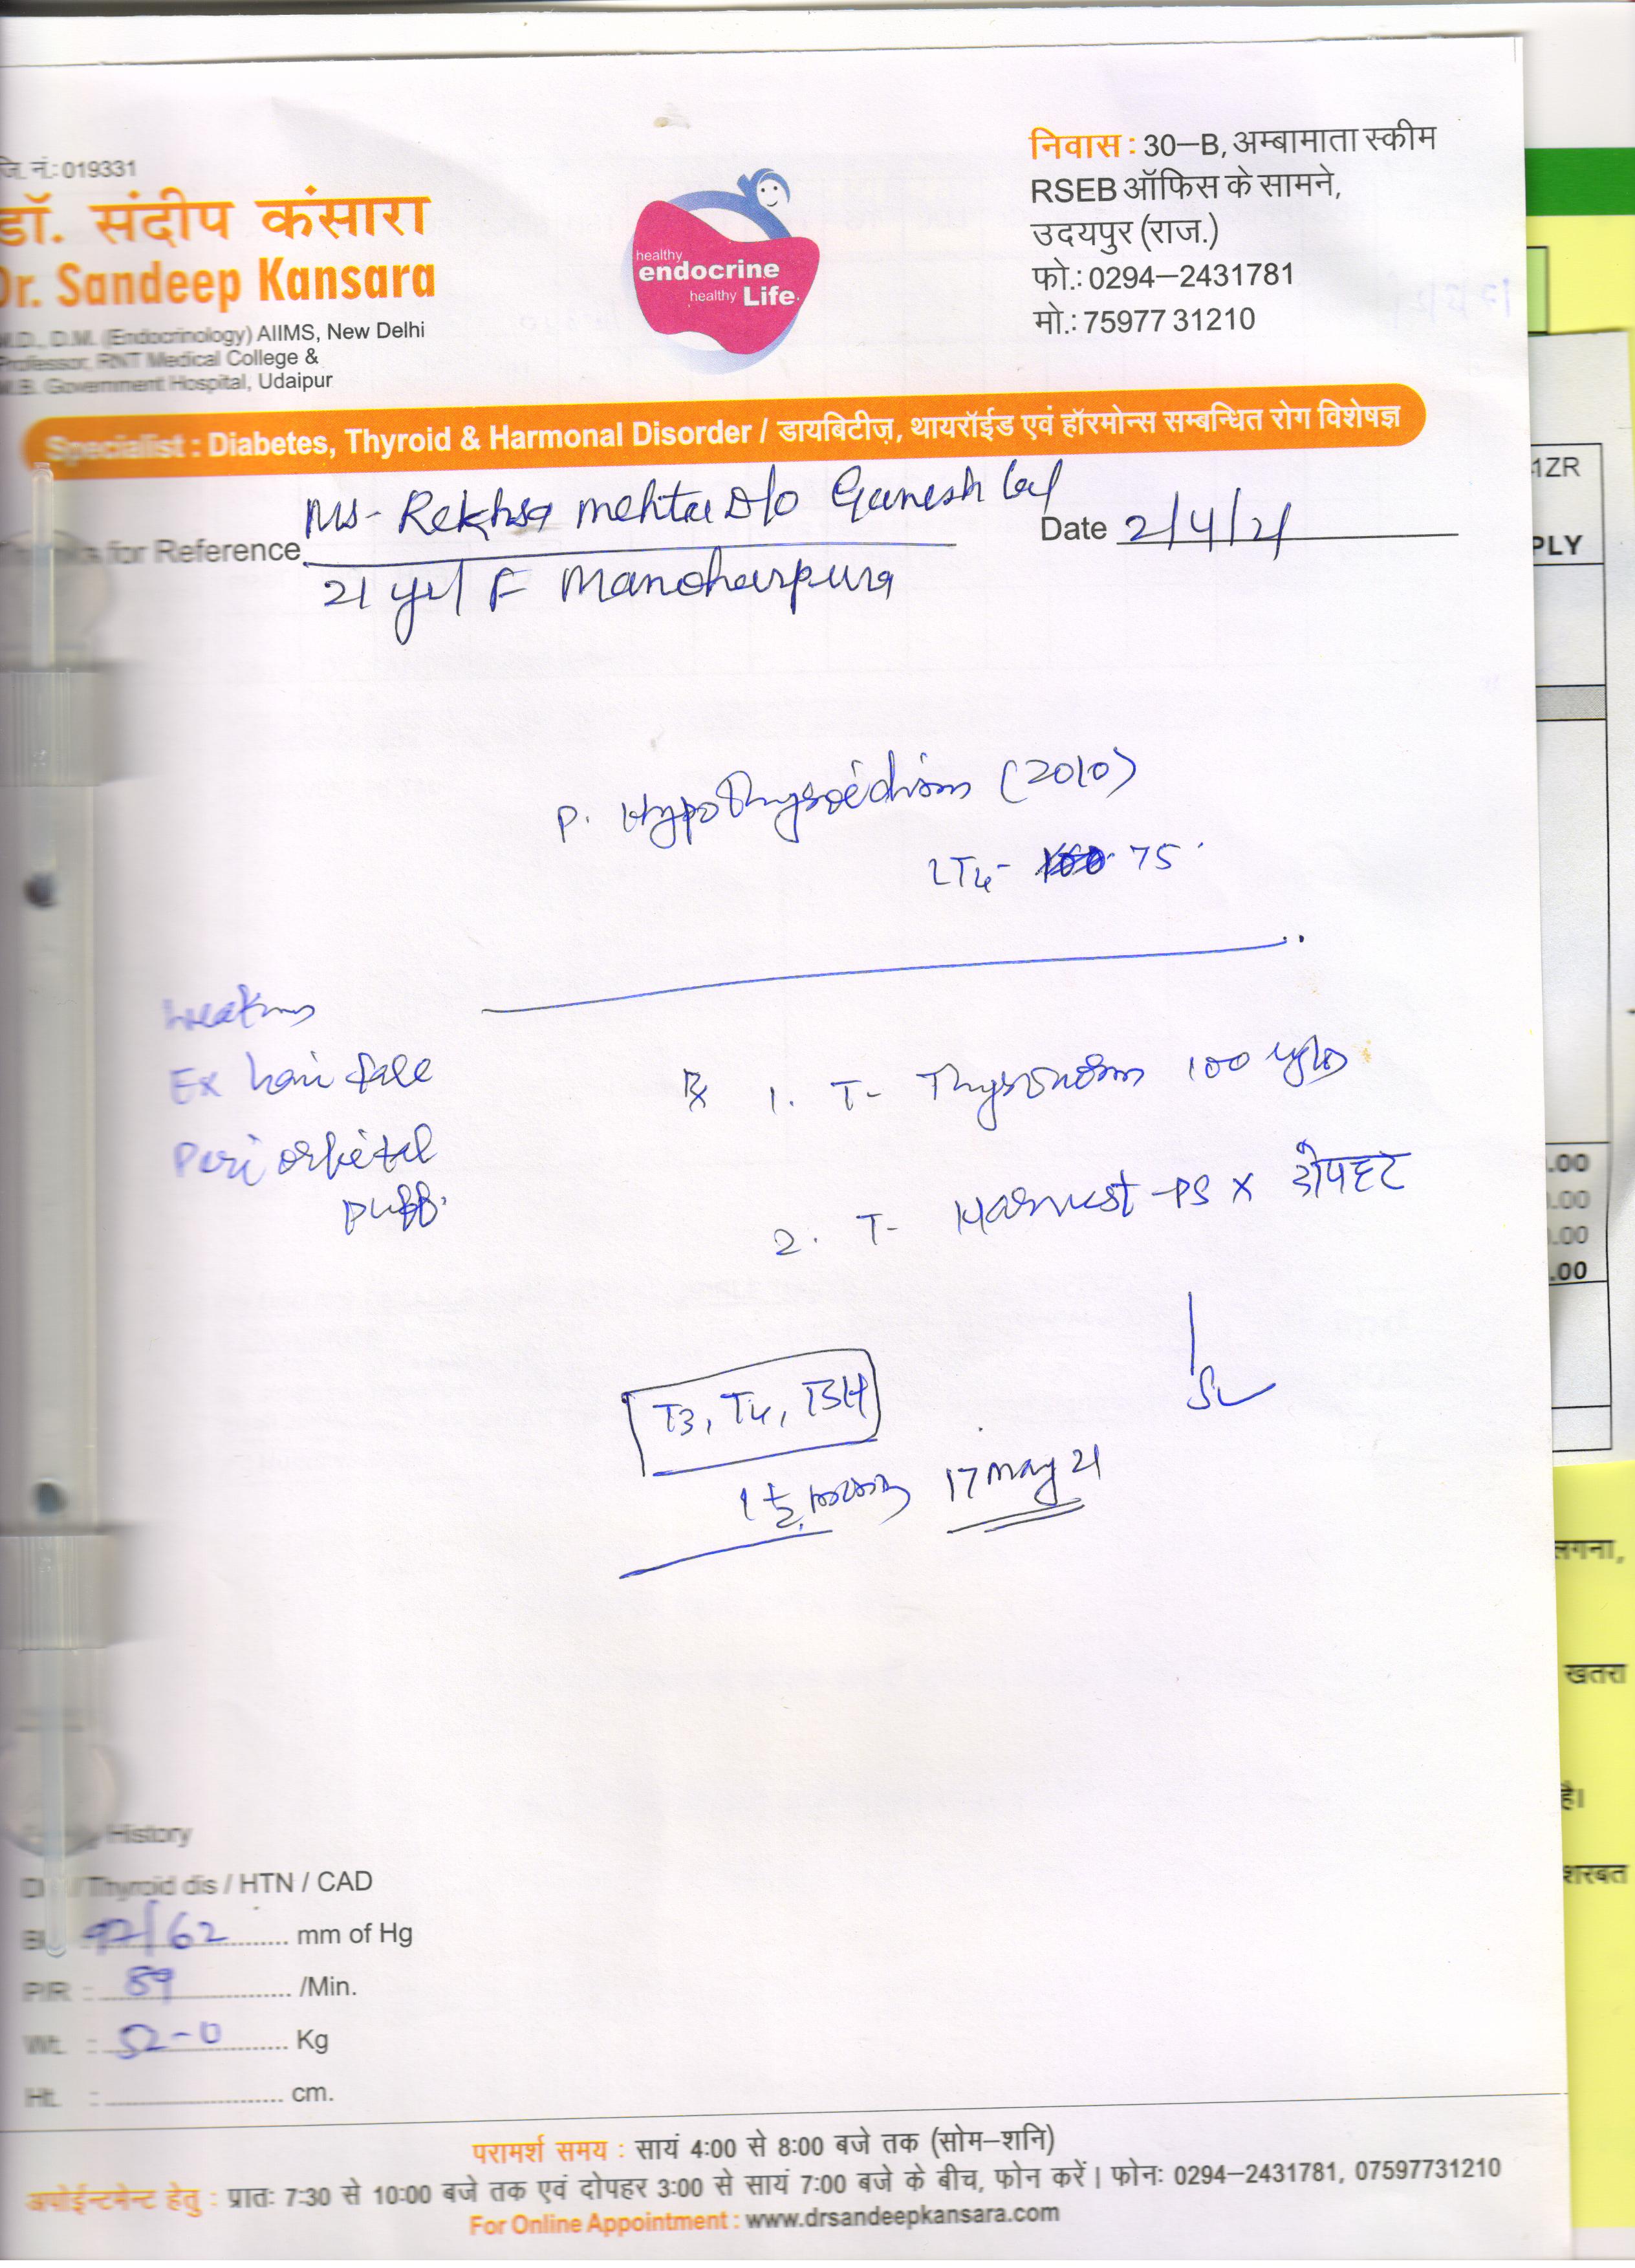 जि. नं.: 019331
डॉ. संदीप कंसारा
Dr. Sandeep Kansara
M.D., D.M. (Endocrinology) AIIMS, New Delhi
Professor, RNT Medical College &
M.B. Government Hospital, Udaipur
healthy
endocrine
healthy Life.
निवास : 30–B, अम्बामाता स्कीम
RSEB ऑफिस के सामने,
उदयपुर (राज.)
फो.: 0294–2431781
मो.: 75977 31210
Specialist : Diabetes, Thyroid & Harmonal Disorder / डायबिटीज़, थायरॉईड एवं हॉरमोन्स सम्बन्धित रोग विशेषज्ञ
Ms- Rekhsa mehta D/o Ganesh lal
for Reference
Date 2/4/21
21 yr/ F Manoharpura
P. Hypothyroidism (2010)
LT4- 75
Weakns
Ex hair fall
Peri orbital
puff.
Rx 1. T- Thyronorm 100
2. T- Harvest-PS x दोपहर
T3, T4, TSH
1 1/2 17 May 21
1ZR
PLY
.00
.00
.00
.00
लगना,
खतरा
है।
शरबत
History
Thyroid dis / HTN / CAD
97/62 mm of Hg
P/R : 89 /Min.
Wt. : 52-0 Kg
Ht. : cm.
परामर्श समय : सायं 4:00 से 8:00 बजे तक (सोम–शनि)
अपोईन्टमेन्ट हेतु : प्रातः 7:30 से 10:00 बजे तक एवं दोपहर 3:00 से सायं 7:00 बजे के बीच, फोन करें। फोनः 0294–2431781, 07597731210
For Online Appointment : www.drsandeepkansara.com